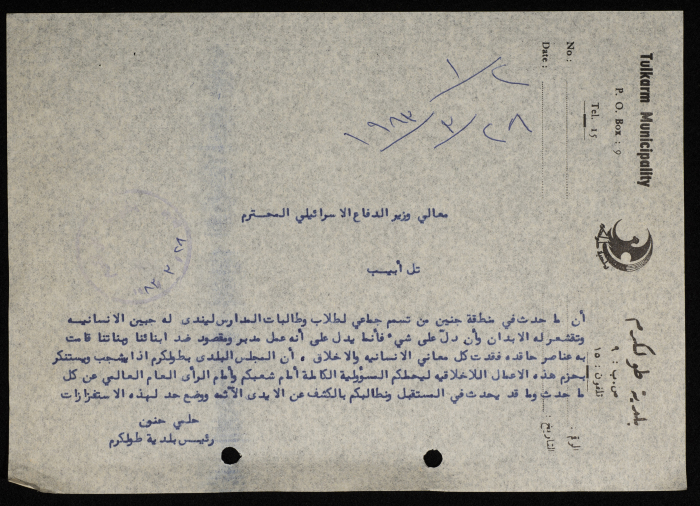 Tulkarm Municipality
P. O. Box : 9
Tel. 15
No. :
Date :
بلدية طولكرم
ص.ب : ٩
تلفون : ١٥
الرقم :
التاريخ :
١/٢
٢٨/٣/١٩٨٣
معالي وزير الدفاع الاسرائيلي المحترم
تل أبيب
أن ما حدث في منطقة جنين من تسمم جماعي لطلاب وطالبات المدارس ليندى له جبين الانسانيه
وتقشعر له الابدان وأن دلّ على شيء فأنما يدل على أنه عمل مدبر ومقصود ضد ابنائنا وبناتنا قامت
به عناصر حاقده فقدت كل معاني الانسانيه والاخلاق ، أن المجلس البلدى بطولكرم اذ يشجب ويستنكر
بحزم هذه الاعمال اللاخلاقيه ليحملكم المسؤولية الكاملة أمام شعبكم وأمام الرأى العام العالمي عن كل
ما حدث وما قد يحدث في المستقبل ونطالبكم بالكشف عن الايدى الآثمه ووضع حد لهذه الاستفزازات
حلمي حنون
رئيس بلدية طولكرم